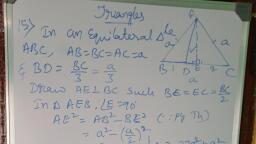 Triangles
15) In an equilateral Δle
ABC, AB=BC=AC=a
& BD = BC/3 = a/3
Draw AE⊥BC such BE=EC=BC/2
In Δ AEB, ∠E=90°
AE² = AB² - BE² (∵ Py Th)
= a² - (a/2)²
a
a
B
D
E
2
C
a